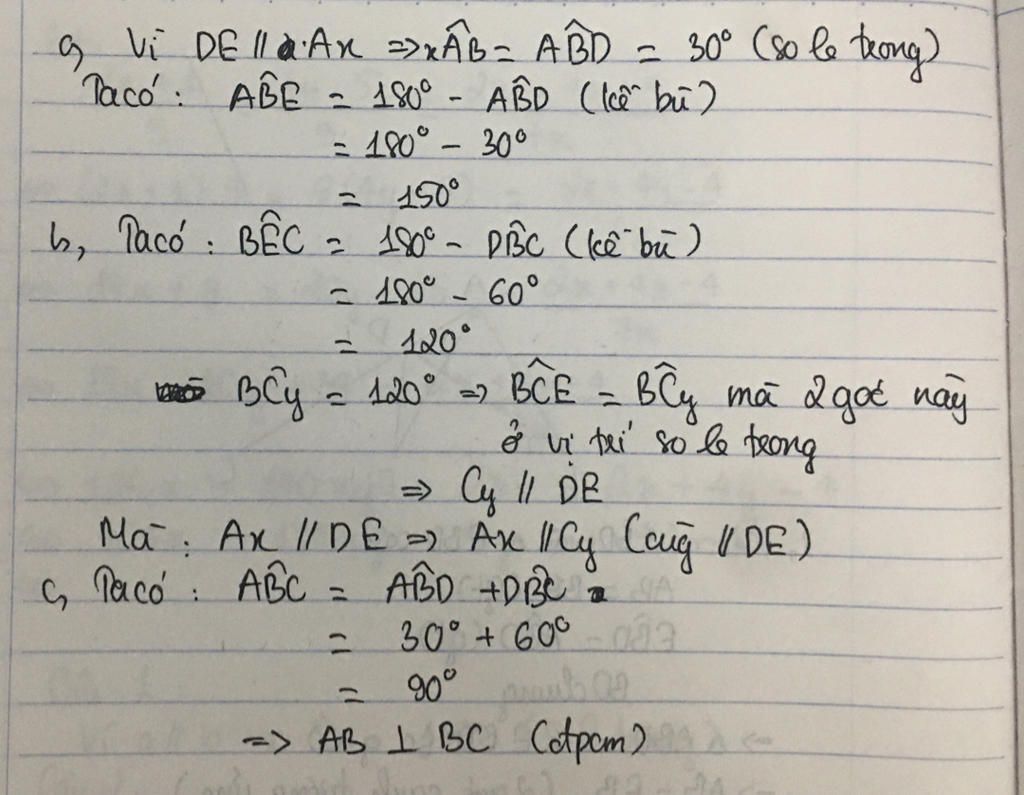 a, Vì DE // Ax => xÂB = AB̂D = 30° (so le trong)
Ta có : AB̂E = 180° - AB̂D (kề bù)
= 180° - 30°
= 150°
b, Ta có : BÊC = 180° - DB̂C (kề bù)
= 180° - 60°
= 120°
BĈy = 120° => BĈE = BĈy mà 2 góc này
ở vị trí so le trong
=> Cy // DE
Mà : Ax // DE => Ax // Cy (cùng // DE)
c, Ta có : AB̂C = AB̂D + DB̂C
= 30° + 60°
= 90°
=> AB ⊥ BC (đpcm)